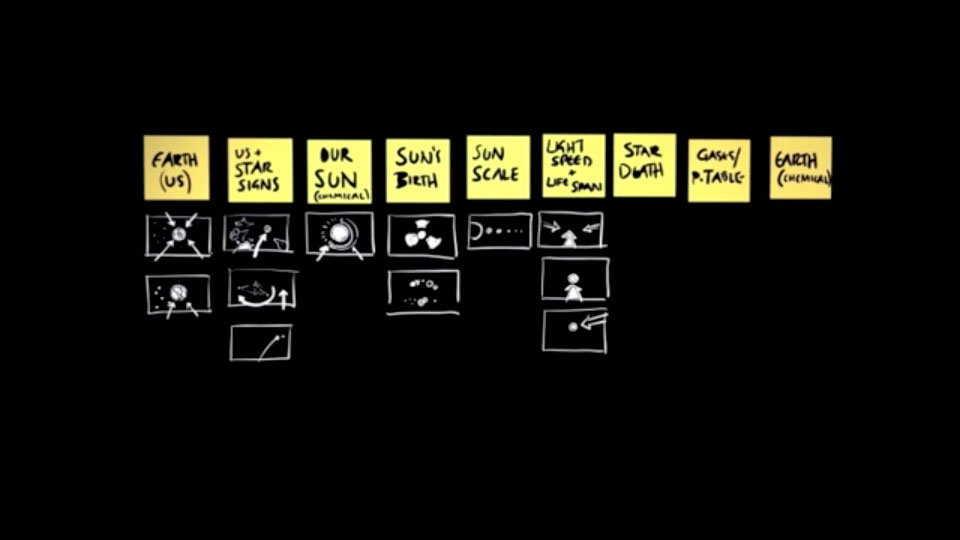 EARTH
(US)
US +
STAR
SIGNS
OUR
SUN
(CHEMICAL)
SUN'S
BIRTH
SUN
SCALE
LIGHT
SPEED
+
LIFE SPAN
STAR
DEATH
GASES/
P.TABLE
EARTH
(CHEMICAL)